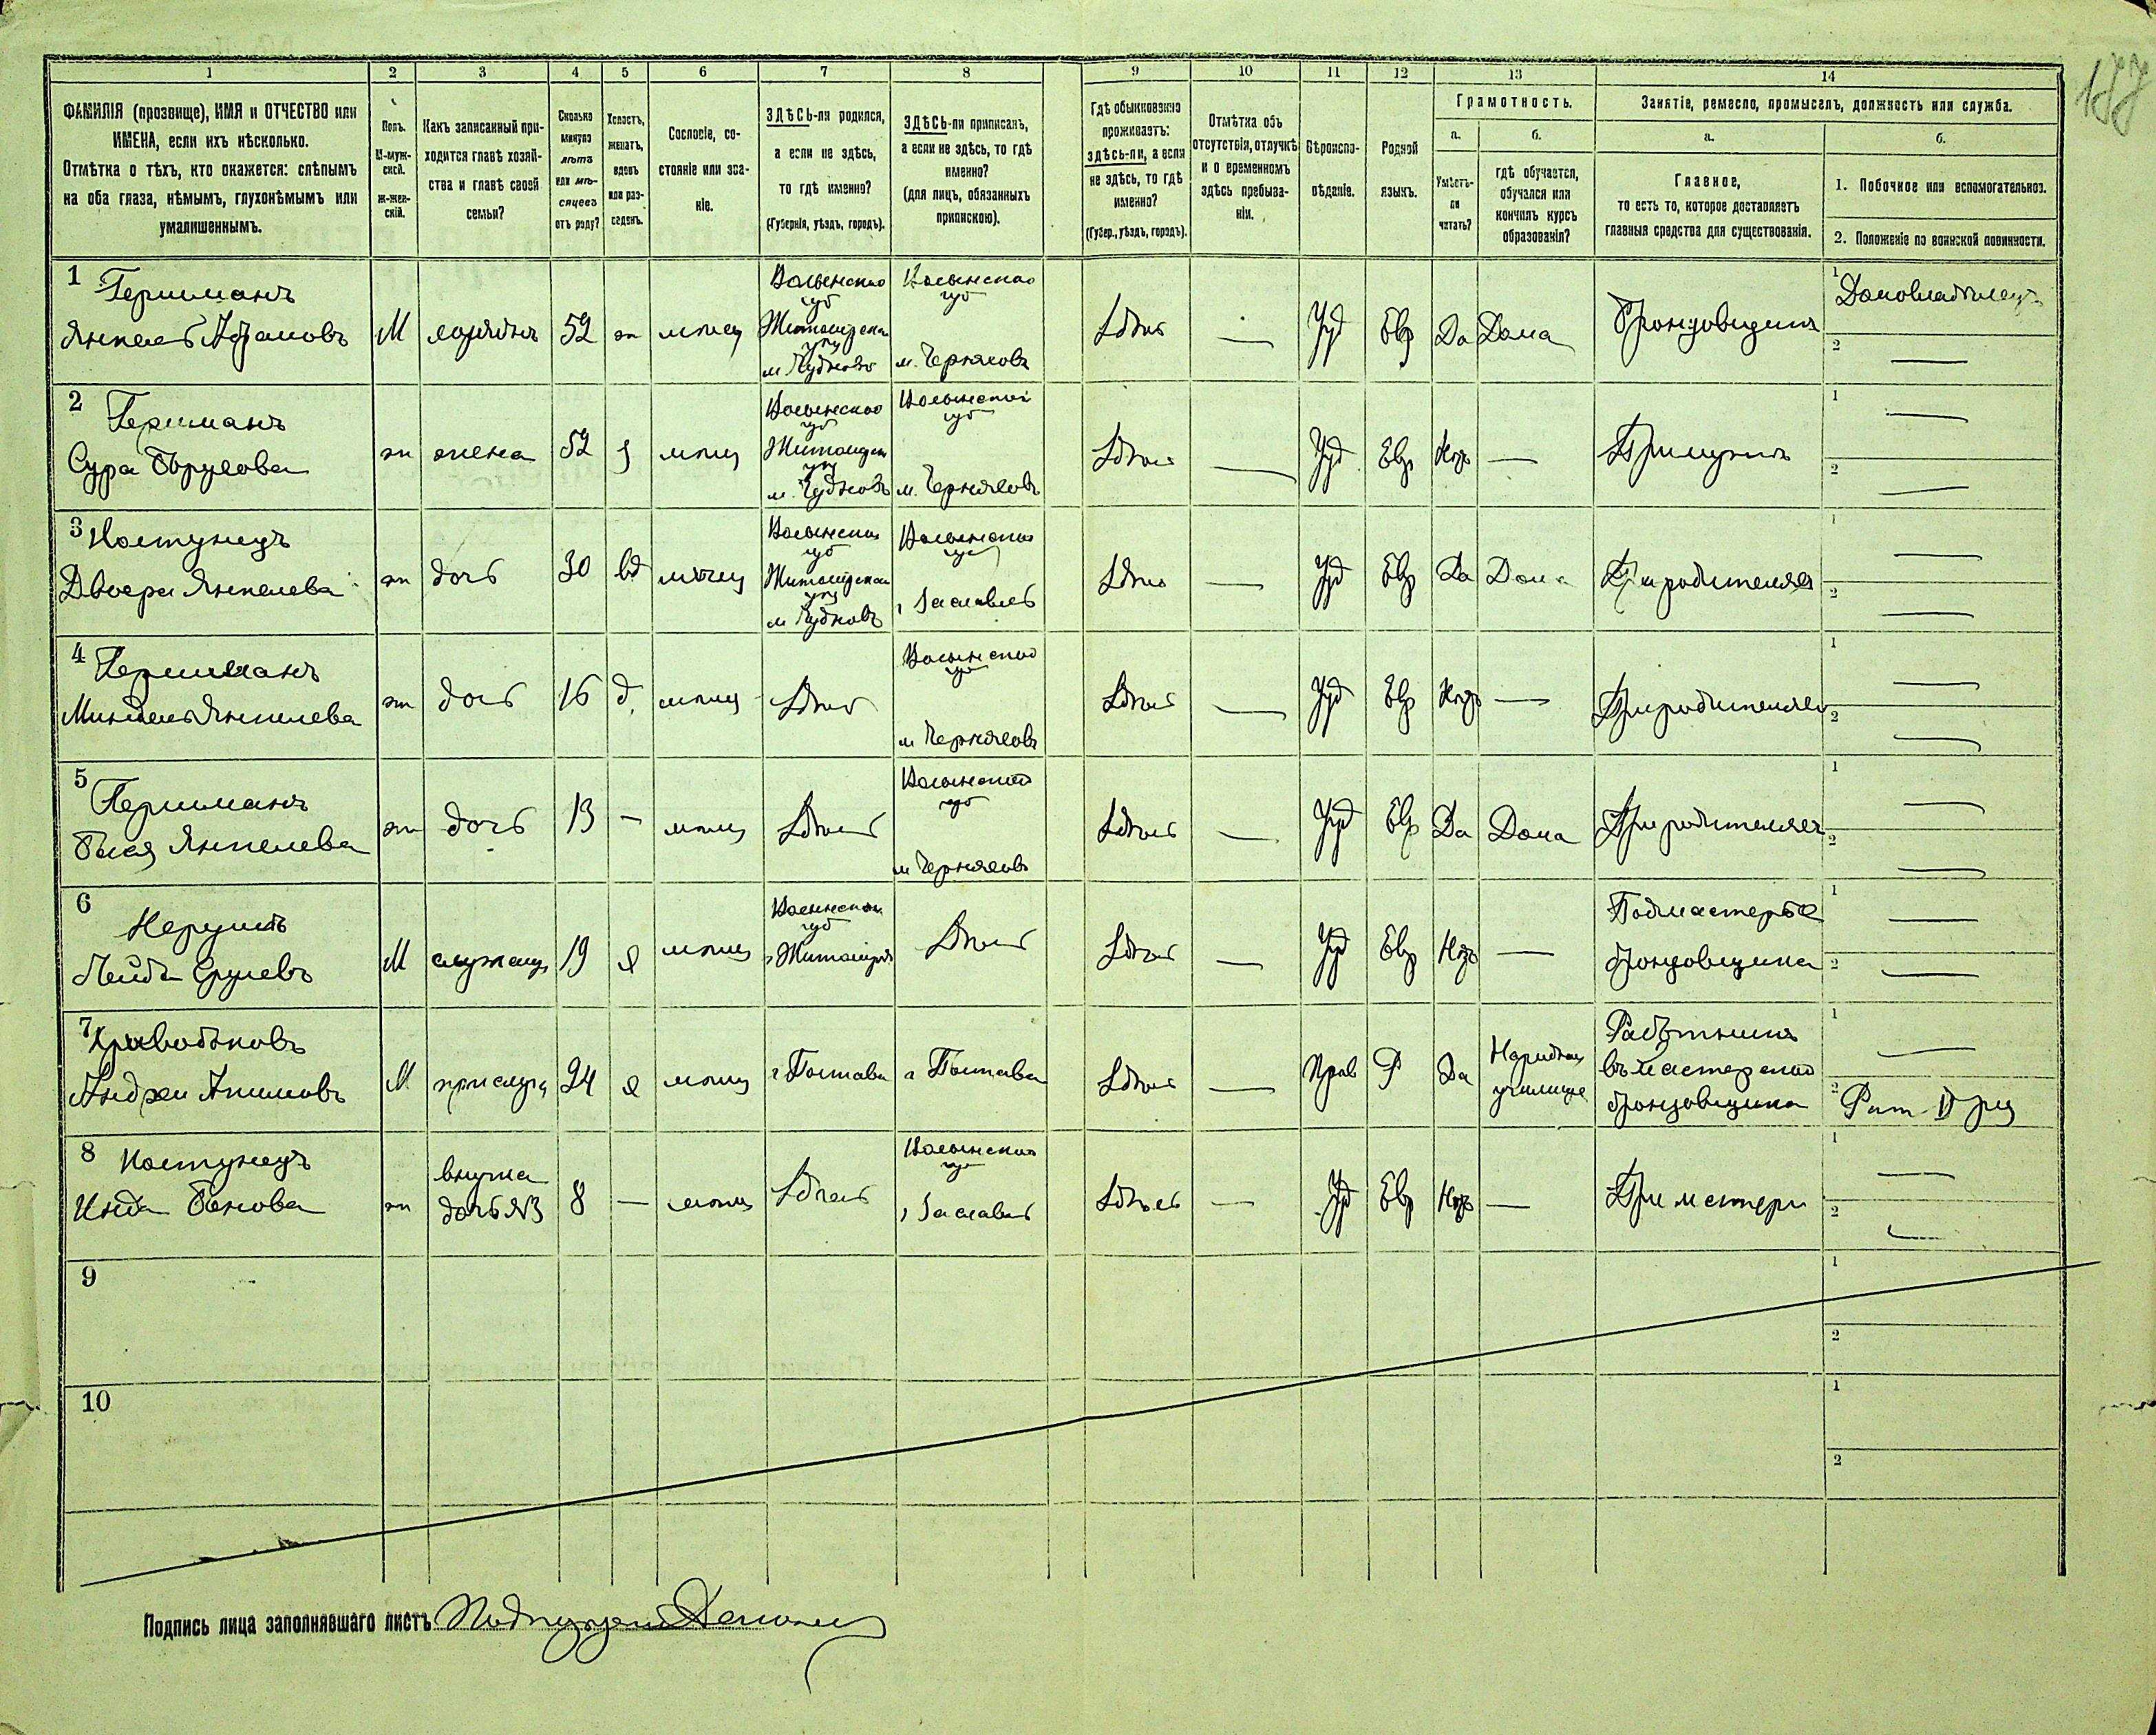 187
1 2 3 4 5 6 7 8 9 10 11 12 13 14
ФАМИЛІЯ (прозвище), ИМЯ и ОТЧЕСТВО или
ИМЕНА, если ихъ нѣсколько.
Отмѣтка о тѣхъ, кто окажется: слѣпымъ
на оба глаза, нѣмымъ, глухонѣмымъ или
умалишеннымъ.
Полъ.
М-муж-
ской.
Ж-жен-
скій.
Какъ записанный при-
ходится главѣ хозяй-
ства и главѣ своей
семьи?
Сколько
минуло
лѣтъ
или мѣ-
сяцевъ
отъ роду?
Холостъ,
женатъ,
вдовъ
или раз-
веденъ.
Сословіе, со-
стояніе или зва-
ніе.
ЗДѢСЬ-ли родился,
а если не здѣсь,
то гдѣ именно?
(Губернія, уѣздъ, городъ).
ЗДѢСЬ-ли приписанъ,
а если не здѣсь, то гдѣ
именно?
(для лицъ, обязанныхъ
припискою).
Гдѣ обыкновенно
проживаетъ:
здѣсь-ли, а если
не здѣсь, то гдѣ
именно?
(Губер., уѣздъ, городъ).
Отмѣтка объ
отсутствіи, отлучкѣ
и о временномъ
здѣсь пребыва-
ніи.
Вѣроиспо-
вѣданіе.
Родной
языкъ.
Грамотность.
а.
Умѣетъ-
ли
читать?
б.
гдѣ обучается,
обучался или
кончилъ курсъ
образованія?
Занятіе, ремесло, промыселъ, должность или служба.
а.
Главное,
то есть то, которое доставляетъ
главныя средства для существованія.
б.
1. Побочное или вспомогательное.
2. Положеніе по воинской повинности.
1 Гершманъ
Янкель Абрамовъ
М
хозяинъ
52
ж
мѣщ
Волынской
губ
м Чудновъ
Волынской
губ
м. Черняховъ
Здѣсь
—
Іуд
Евр
Да
Дома
Бронзовщикъ
1 Домовладѣлецъ
2 —
2 Гершманъ
Сура
ж
жена
52
з
мѣщ
Волынской
губ
м. Чудновъ
Волынской
губ
м. Черняховъ
Здѣсь
—
Іуд
Евр
Нѣтъ
—
При мужѣ
1 —
2 —
3 Костунецъ
Двойра Янкелева
ж
дочь
30
вд
мѣщ
Волынской
губ
м Чудновъ
Волынской
губ
г Заславль
Здѣсь
—
Іуд
Евр
Да
Дома
При родителяхъ
1 —
2 —
4 Гершманъ
Миндель Янкелева
ж
дочь
16
д
мѣщ
Здѣсь
Волынской
губ
м Черняховъ
Здѣсь
—
Іуд
Евр
Нѣтъ
—
При родителяхъ
1 —
2 —
5 Гершманъ
Янкелева
ж
дочь
13
—
мѣщ
Здѣсь
Волынской
губ
м Черняховъ
Здѣсь
—
Іуд
Евр
Да
Дома
При родителяхъ
1 —
2 —
6
Лейба Срулевъ
М
19
х
мѣщ
Волынской
губ
г Житомиръ
Здѣсь
Здѣсь
—
Іуд
Евр
Нѣтъ
—
Подмастерье
бронзовщика
1 —
2 —
7 Кривобоковъ
Андрей Акимовъ
М
прислуга
24
х
мѣщ
г Полтава
г Полтава
Здѣсь
—
Прав
Р
Да
Народное
училище
Работникъ
въ мастерской
бронзовщика
1 —
2 Рат. II
8 Костунецъ
Бенова
ж
внучка
дочь №3
8
—
мѣщ
Здѣсь
Волынской
губ
г Заславль
Здѣсь
—
Іуд
Евр
Нѣтъ
—
При матери
1 —
2 —
9
1
2
10
1
2
Подпись лица заполнявшаго листъ